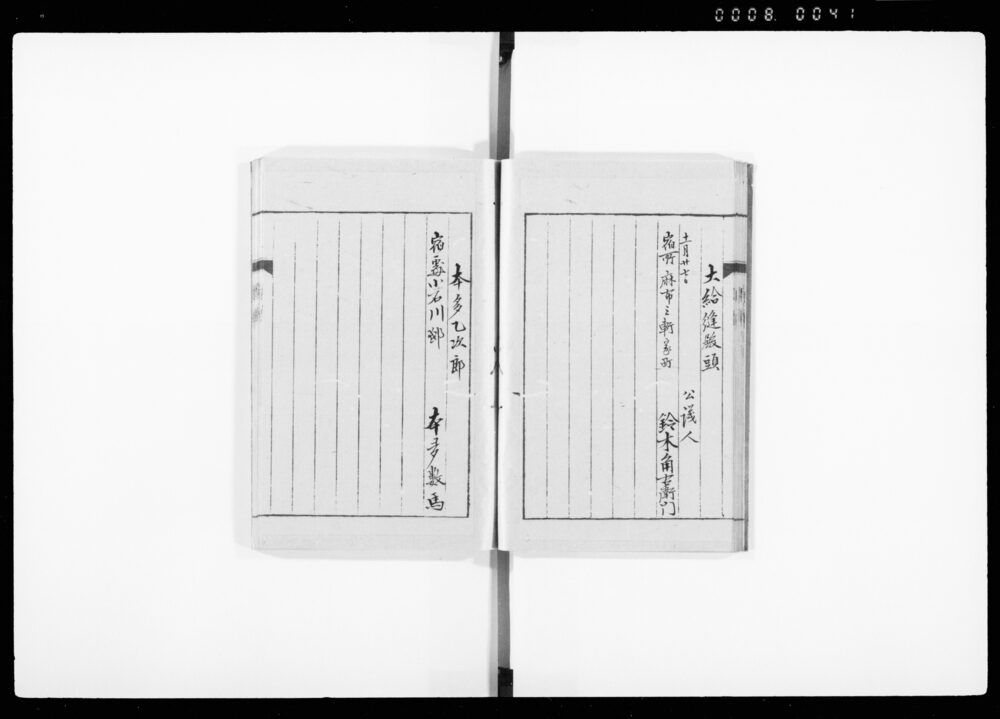 0008.0041
大給縫殿頭
十一月廿七日
公議人
宿所麻布三軒家町
鈴木角右衛門
本多乙次郎
宿処小石川邸
本多数馬